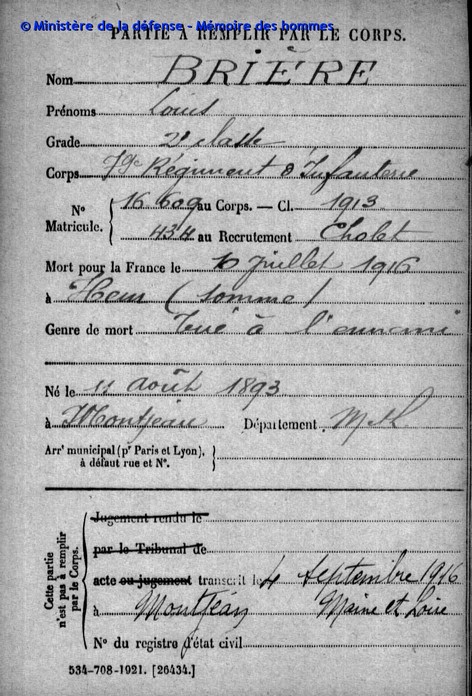 © Ministère de la défense - Mémoire des hommes
PARTIE À REMPLIR PAR LE CORPS.
Nom BRIÈRE
Prénoms Louis
Grade 2e classe
Corps 79e Régiment d'Infanterie
No Matricule. 16 609 au Corps. — Cl. 1913
434 au Recrutement Cholet
Mort pour la France le 10 juillet 1916
à Hem (Somme)
Genre de mort Tué à l'ennemi
Né le 11 août 1893
à Montjean Département M et L
Arrt municipal (pr Paris et Lyon),
à défaut rue et No.
Cette partie n'est pas à remplir par le Corps.
Jugement rendu le
par le Tribunal de
acte ou jugement transcrit le 4 septembre 1916
à Montjean Maine et Loire
No du registre d'état civil
534-708-1921. [26434.]